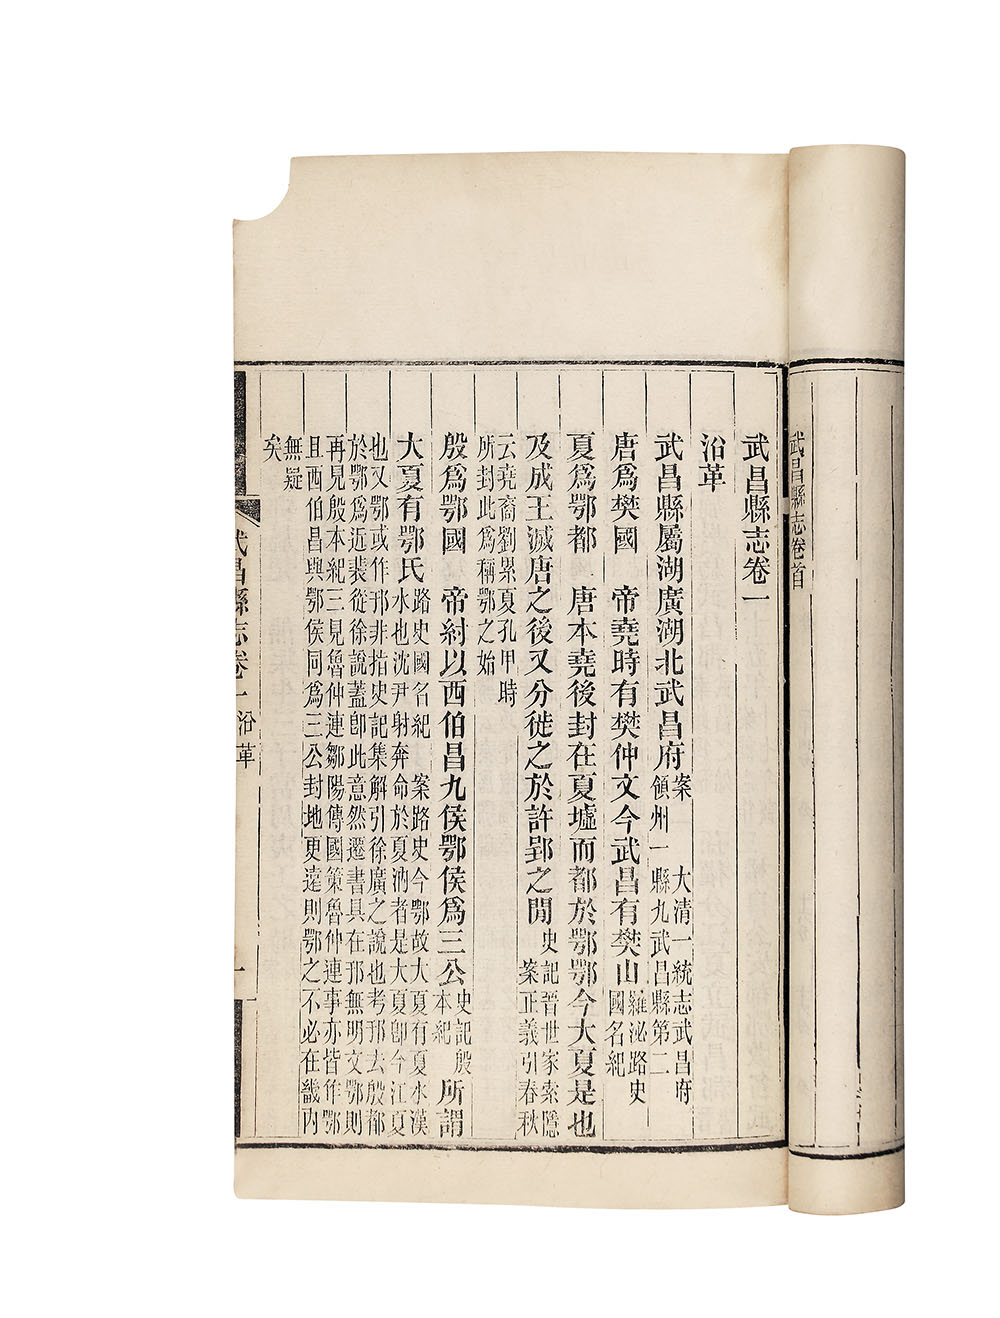 武昌縣志卷首
武昌縣志卷一
沿革
武昌縣屬湖廣湖北武昌府案　大清一統志武昌府領州一縣九武昌縣第二
唐爲樊國　帝堯時有樊仲文今武昌有樊山羅泌路史國名紀
夏爲鄂都　唐本堯後封在夏墟而都於鄂鄂今大夏是也
及成王滅唐之後又分徙之於許郢之閒史記晉世家索隱　案正義引春秋
云堯裔劉累夏孔甲時所封此爲稱鄂之始
殷爲鄂國　帝紂以西伯昌九侯鄂侯爲三公史記殷本紀所謂
大夏有鄂氏路史國名紀　案路史今鄂故大夏有夏水漢水也沈尹射奔命於夏汭者是大夏卽今江夏
也又鄂或作邘非指史記集解引徐廣之說也考邘去殷都於鄂爲近裴從徐說蓋卽此意然遷書具在邘無明文鄂則
再見殷本紀三見魯仲連鄒陽傳國策魯仲連事亦皆作鄂且西伯昌與鄂侯同爲三公封地更遠則鄂之不必在畿內
無疑矣
武昌縣志卷一　沿革　一